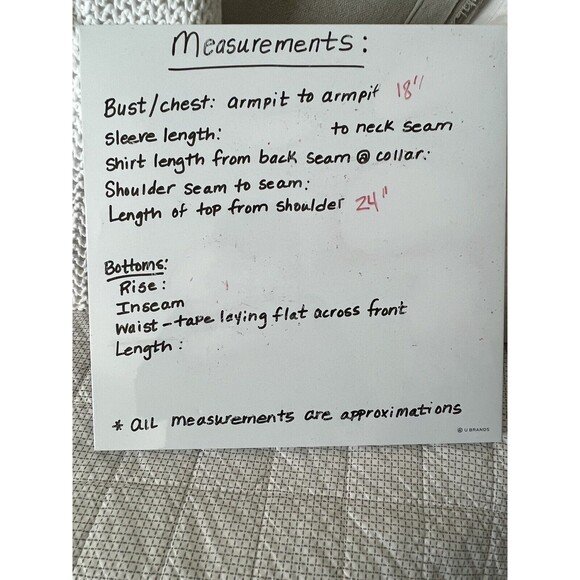 Measurements:
Bust/chest: armpit to armpit 18"
Sleeve length: to neck seam
Shirt length from back seam @ collar:
Shoulder seam to seam:
Length of top from shoulder 24"
Bottoms:
Rise:
Inseam
Waist - tape laying flat across front
Length:
* All measurements are approximations
U BRANDS